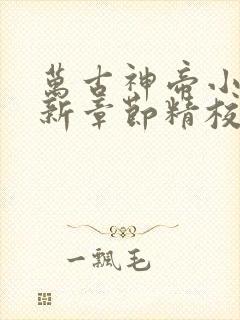 萬古神帝小
新章節精校
一飄毛